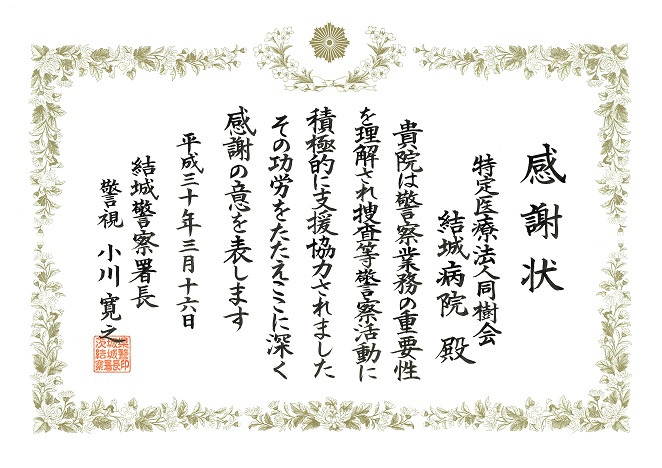 感謝状
特定医療法人同樹会
結城病院 殿
貴院は警察業務の重要性
を理解され捜査等警察活動に
積極的に支援協力されました
その功労をたたえここに深く
感謝の意を表します
平成三十年三月十六日
結城警察署長
警視 小川寛之